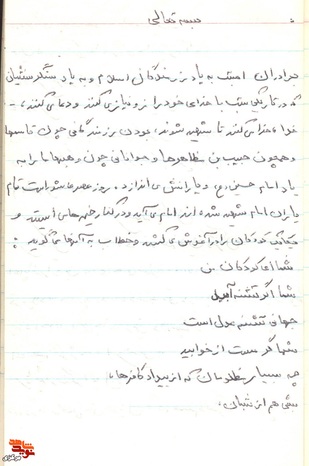 بسمه تعالی
برادران امشب به یاد رزمندگان اسلام و به یاد سنگرنشینان
که در تاریکی شب با خدای خود راز و نیاز می کنند و دعا می کنند، -
خدا خدا می کنند تا شهید شوند، بودن رزمندگانی چون قاسمها
و همچون حبیب بن مظاهرها و جوانانی چون وهبها ما را به
یاد امام حسین (ع) و یارانش می اندازد. روز عصر عاشورا است تمام
یاران امام شهید شده اند امام می آید و در کنار خیمه های ایستد و
کودکان را در آغوش می کشد و خطاب به آنها می گوید:
شما ای کودکان من
شما اگر تشنه آبید
جهانی تشنه عدل است
شما گر مست از خوابید
چه بسیار مظلومان که از بیداد کافرها،